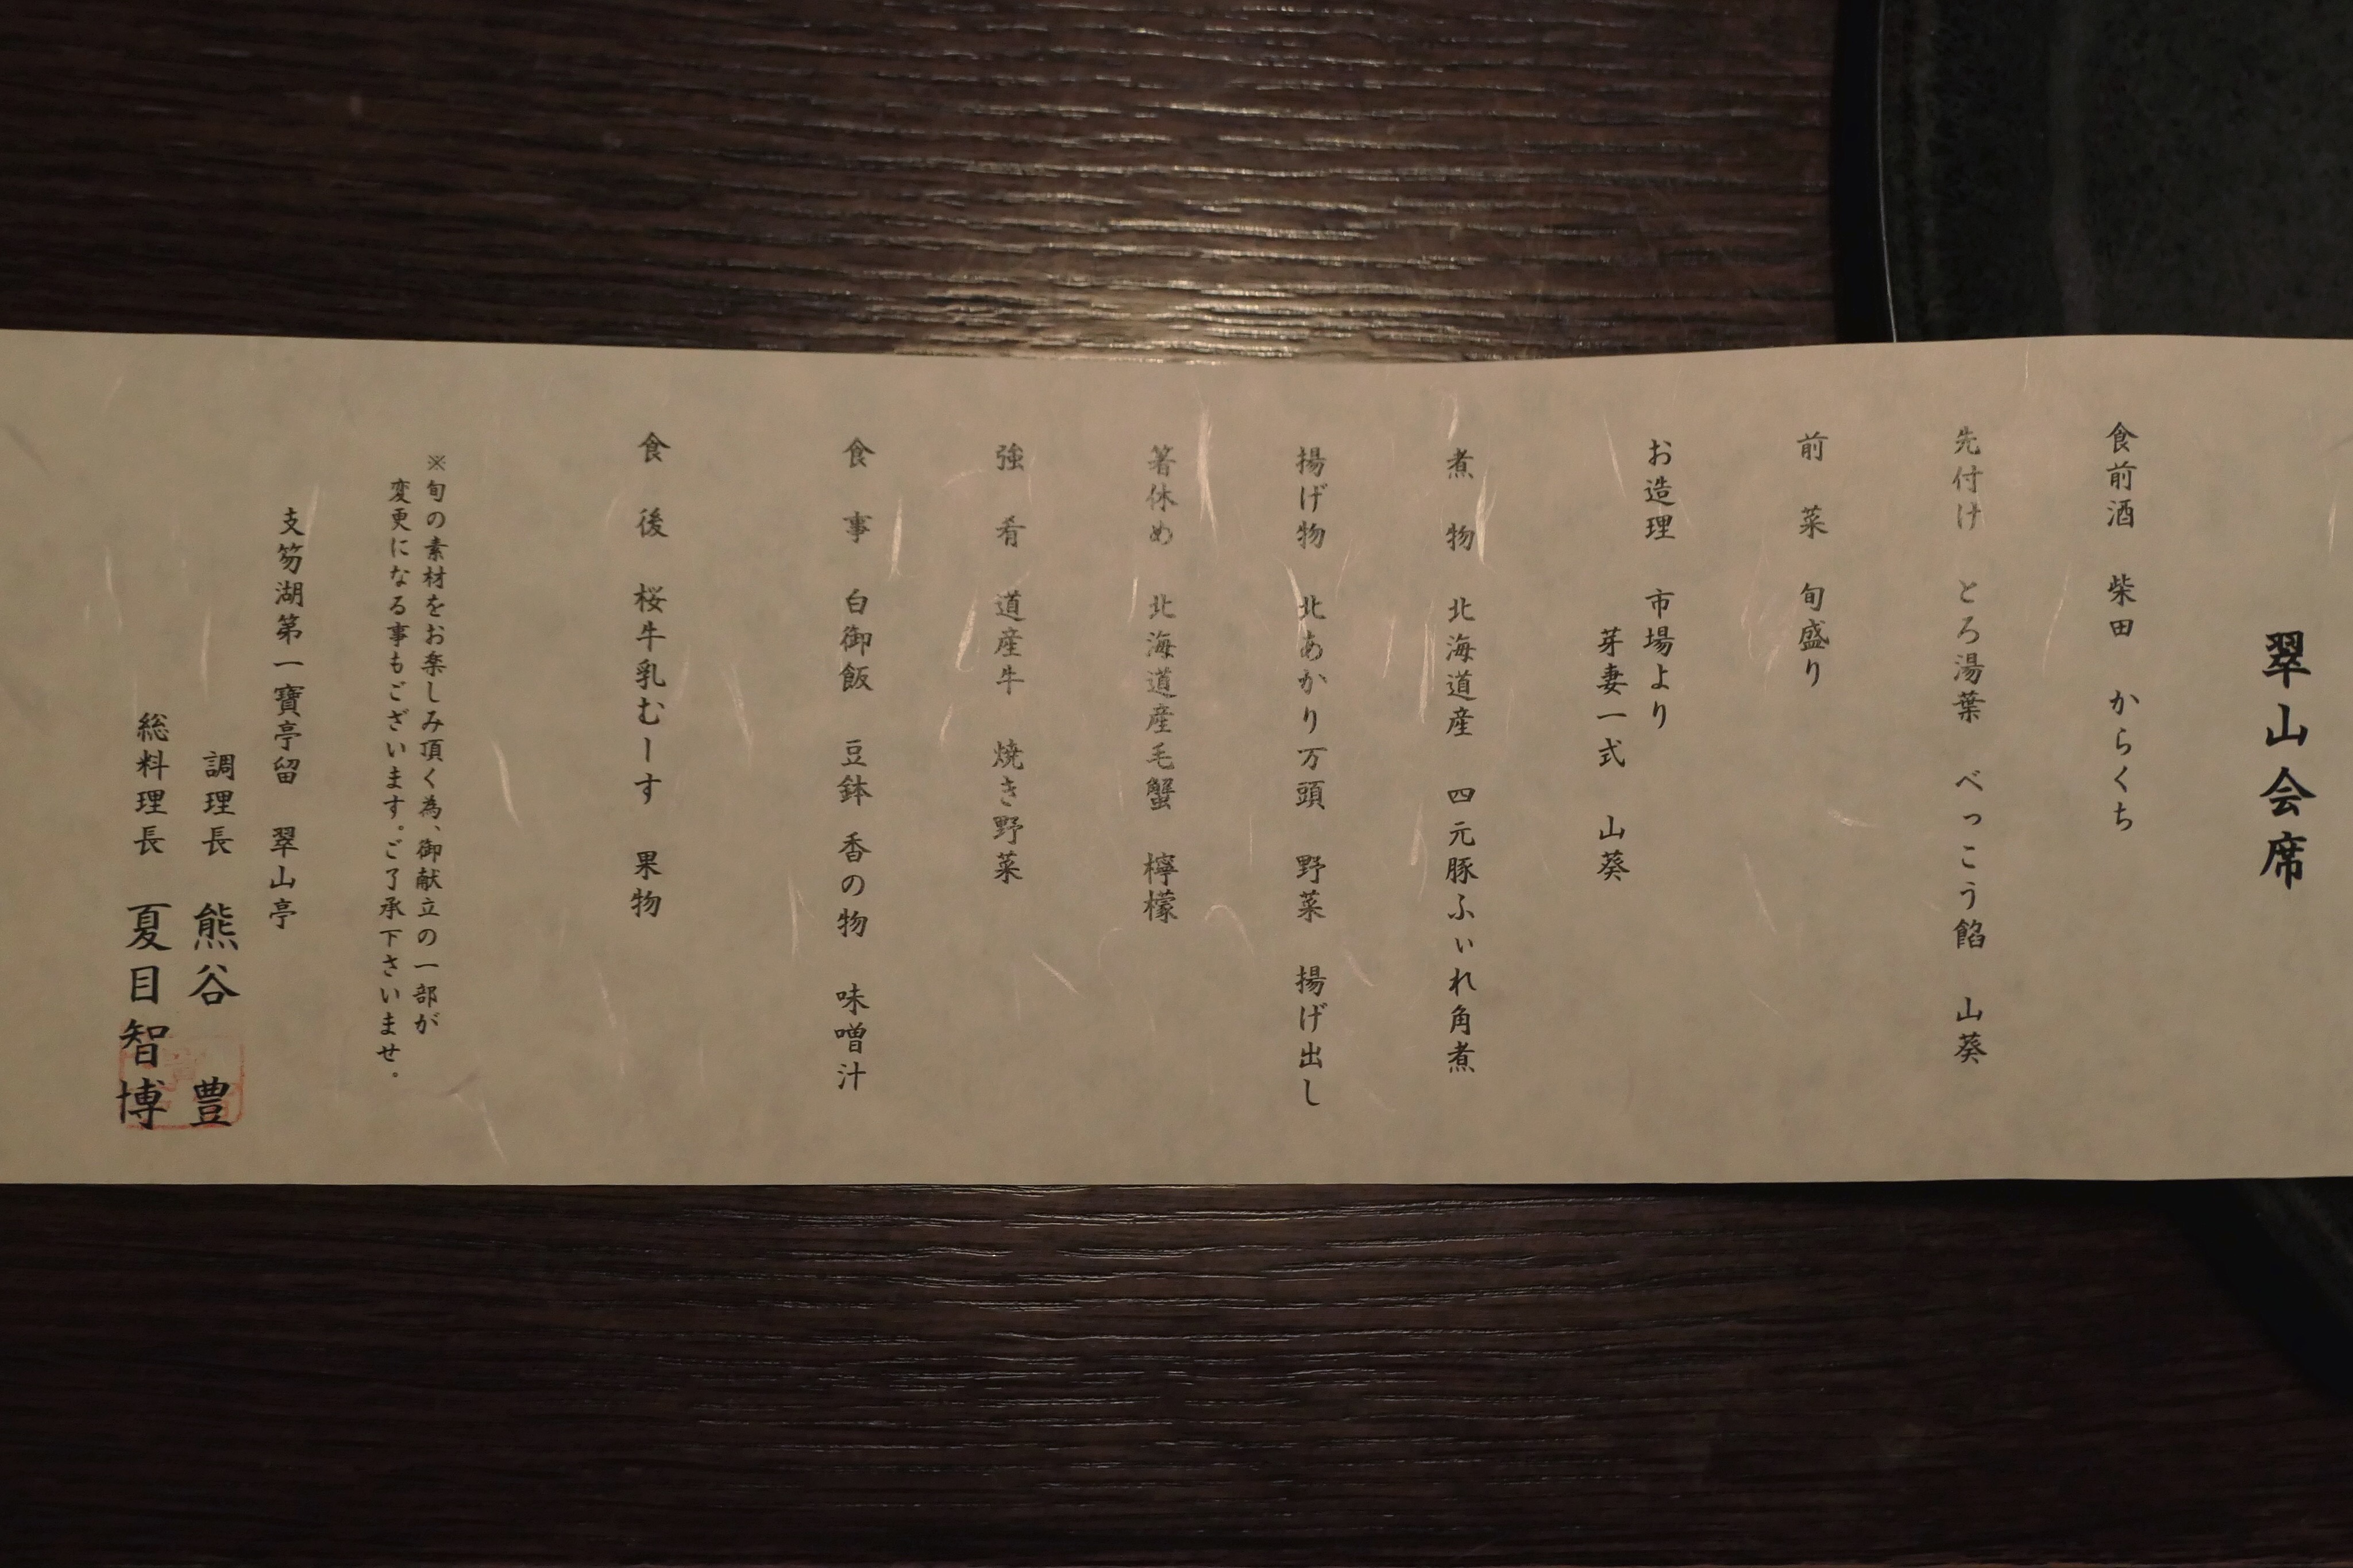 翠山会席
食前酒 柴田 からくち
先付け とろ湯葉 べっこう餡 山葵
前 菜 旬盛り
お造理 市場より
芽妻一式 山葵
煮 物 北海道産 四元豚ふぃれ角煮
揚げ物 北あかり万頭 野菜 揚げ出し
箸休め 北海道産毛蟹 檸檬
強 肴 道産牛 焼き野菜
食 事 白御飯 豆鉢 香の物 味噌汁
食 後 桜牛乳むーす 果物
※旬の素材をお楽しみ頂く為、御献立の一部が
変更になる事もございます。ご了承下さいませ。
支笏湖第一寶亭留 翠山亭
調理長 熊谷 豊
総料理長 夏目智博